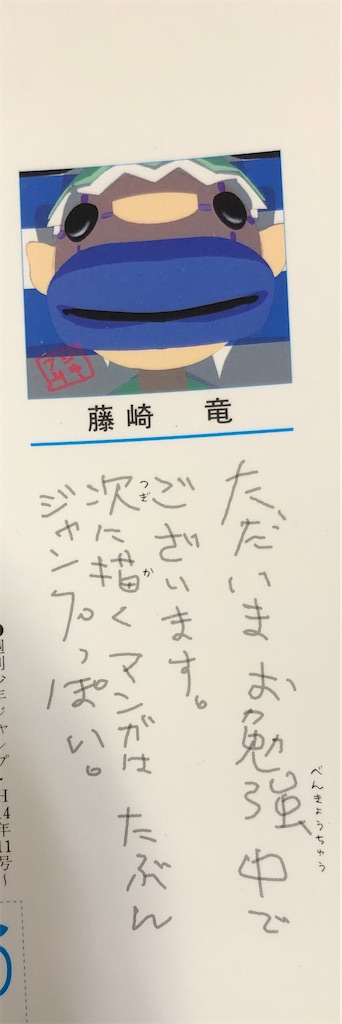 藤崎 竜
ただいまお勉強中で
べんきょうちゅう
ございます。
次に描くマンガは たぶん
つぎ
か
ジャンプっぽい。
週刊少年ジャンプ・H14年11号〜